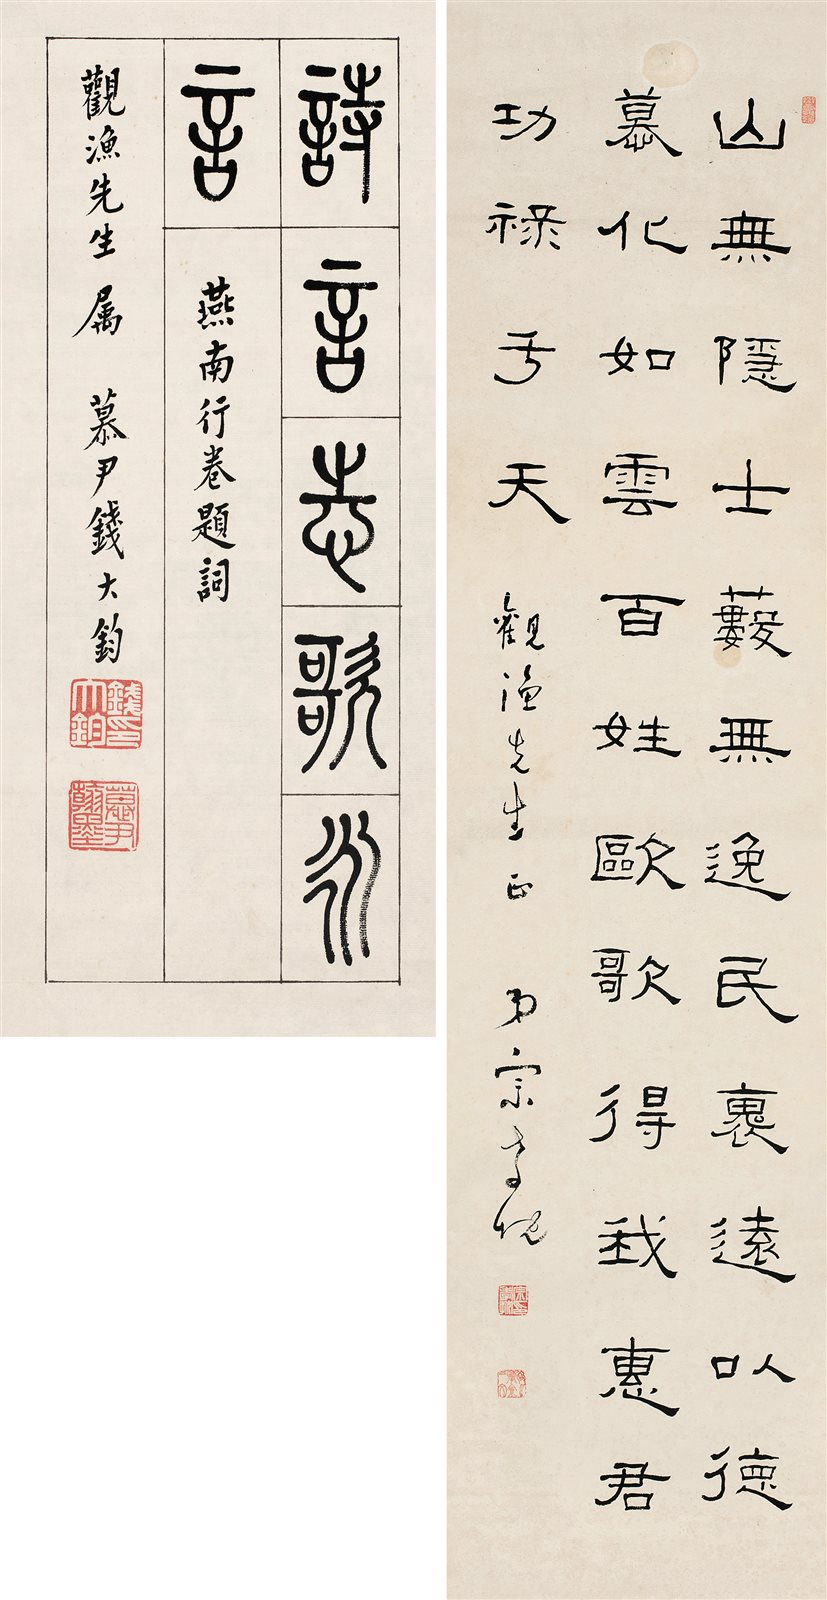 詩言志歌永
言
燕南行卷題詞
觀漁先生 属 慕尹錢大鈞
錢大鈞印
慕尹翰墨
山無隱士藪無逸民褱遠以德
慕化如雲百姓歐歌得我惠君
功祿于天 觀漁先生正 弟宗孝忱